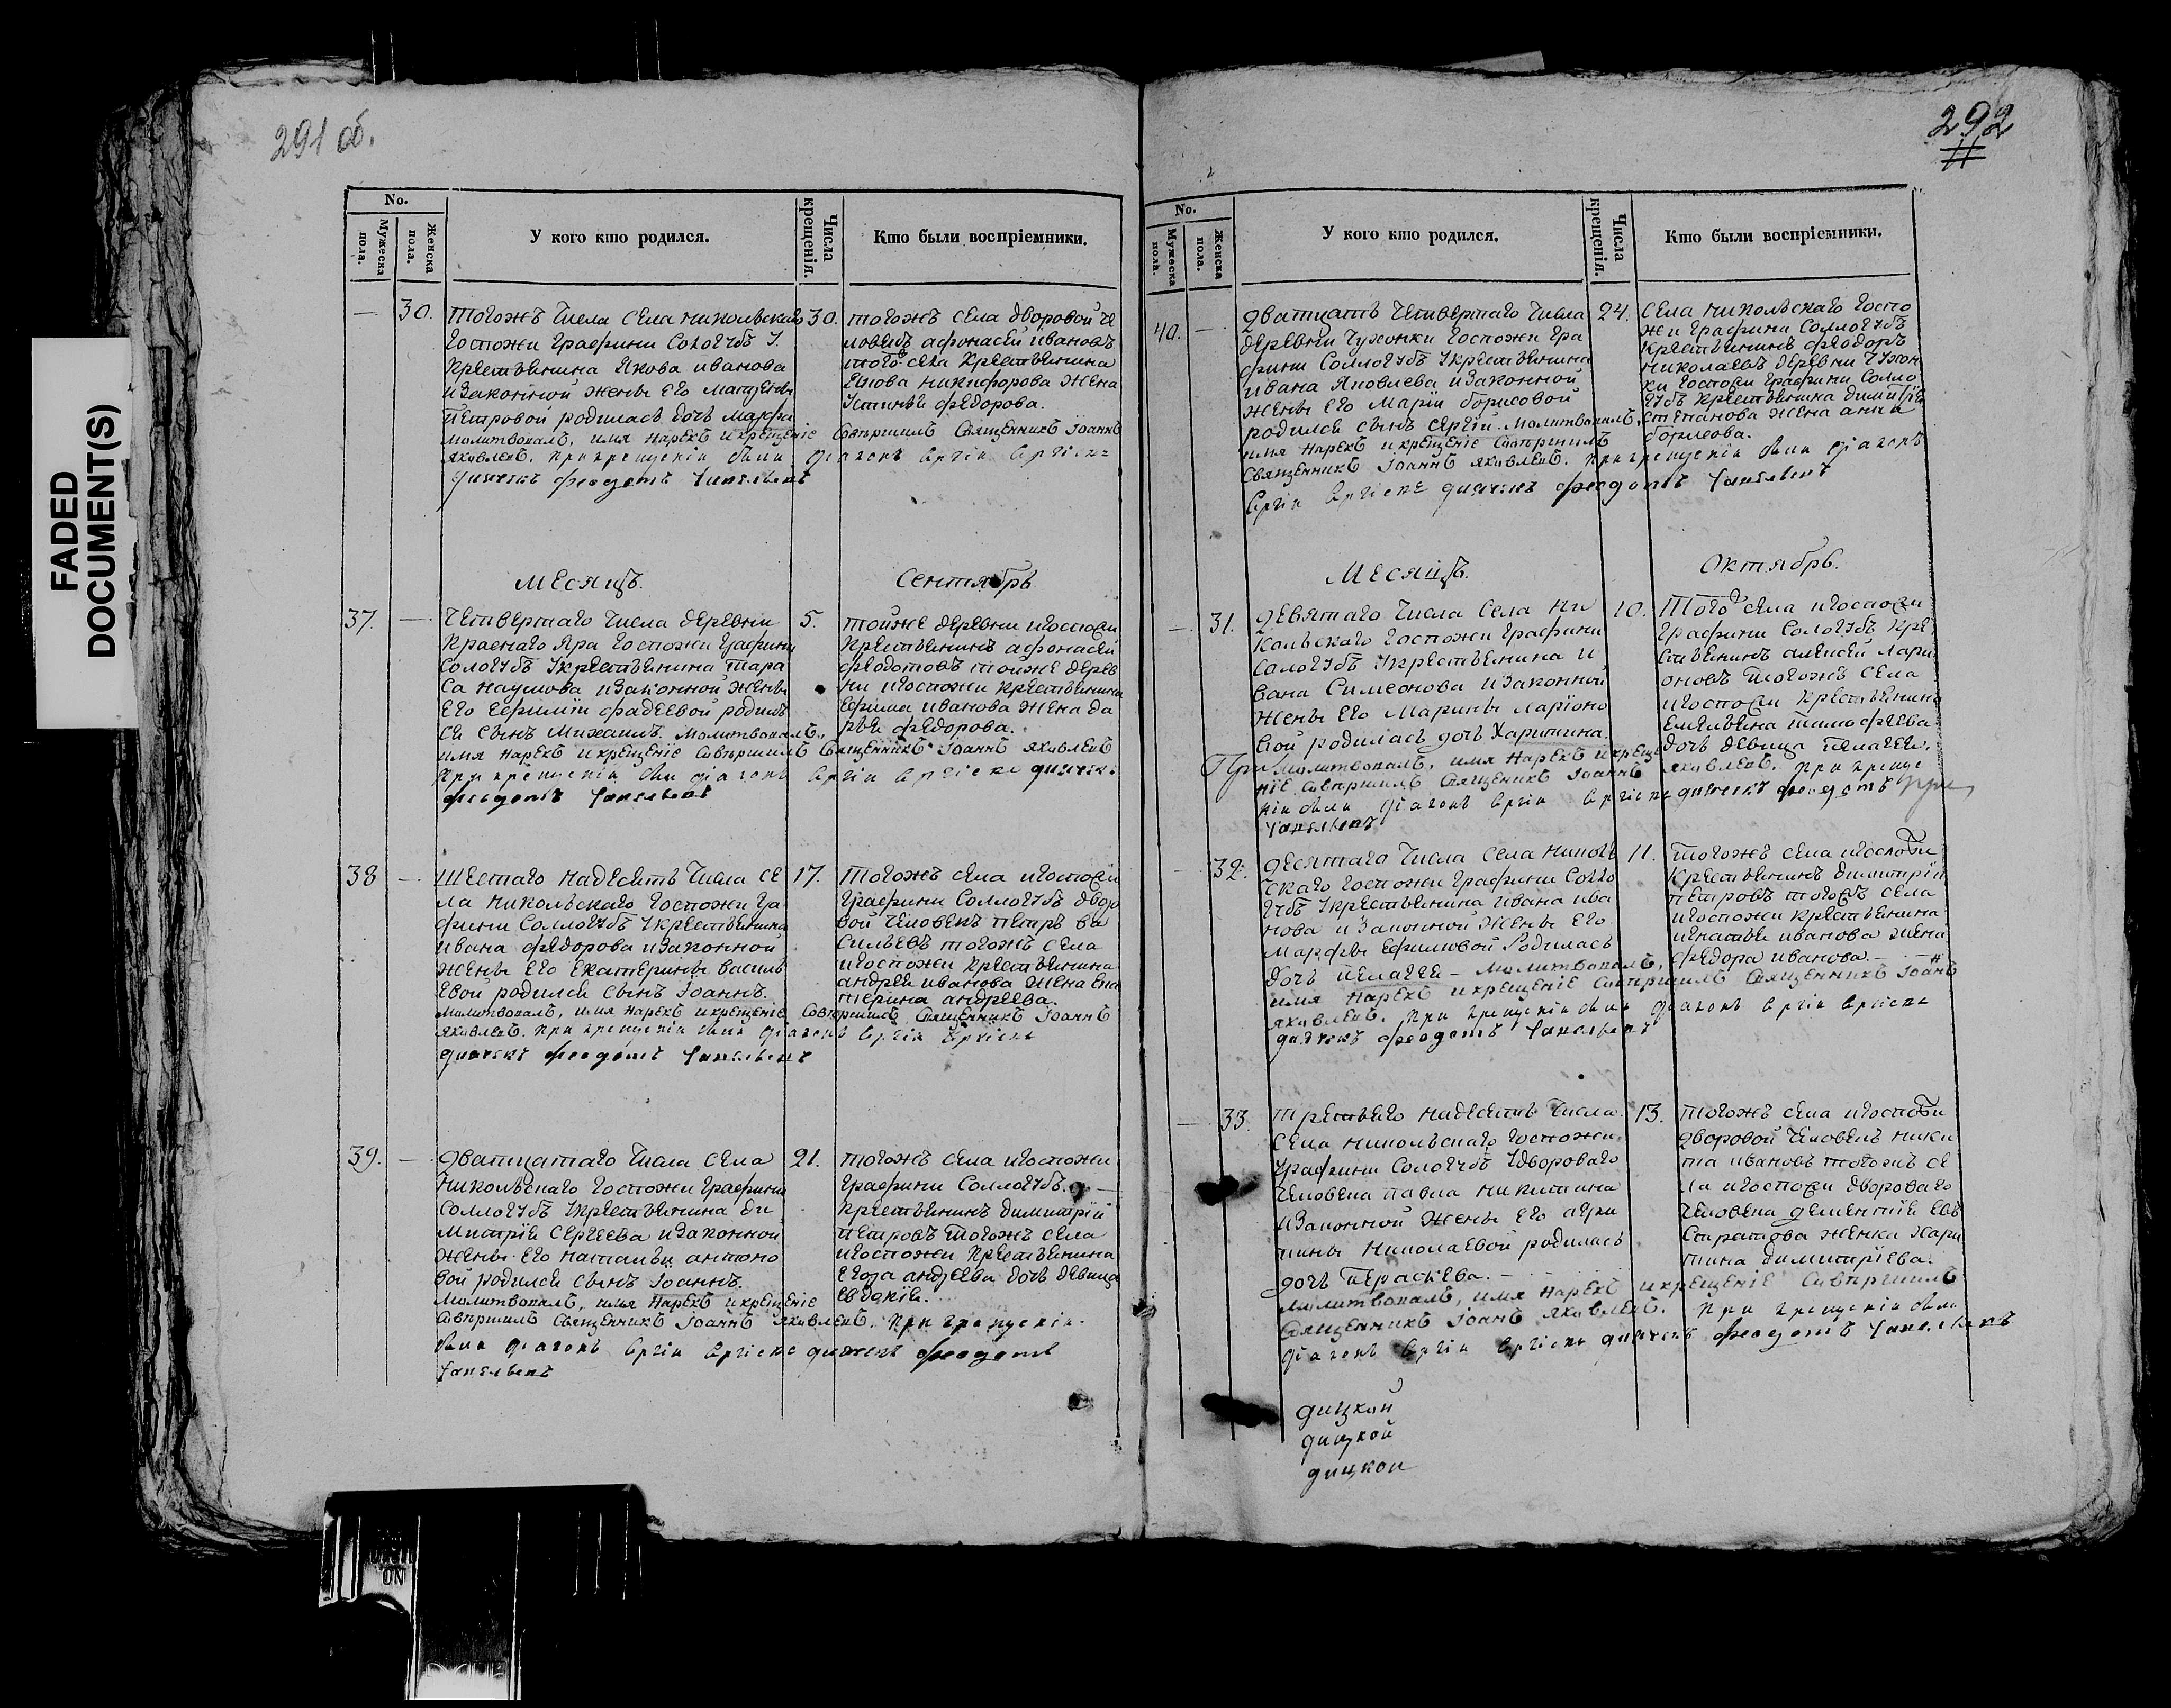 FADED
DOCUMENT(S)
291 об.
No.
Мужеска пола.
Женска пола.
У кого кто родился.
Числа крещенія.
Кто были воспріемники.
— 30.
тогожъ числа села никольскаго
госпожи графини Сологубъ у
крестьянина Якова иванова
и законной жены его
петровой родилась дочь Марфа
молитвовалъ, имя нарекъ и крещеніе совершилъ Священникъ Іоаннъ
яковлевъ. при крещеніи были діаконъ
дьячекъ феодотъ
30.
тогожъ села дворовой че
ловекъ афонасей ивановъ
того села крестьянина
никифорова жена
Устинья федорова.
Месяцъ.
Сентябрь
37. —
четвертаго числа деревни
Краснаго Яра госпожи графини
Сологубъ у крестьянина Тара
са наумова и законной жены
его Ефимии фадеевой родил
ся сынъ Михаилъ. молитвовалъ,
имя нарекъ и крещеніе совершилъ Священникъ Іоаннъ яковлевъ
при крещеніи были діаконъ дьячекъ
феодотъ
5.
тойже деревни и госпожи
крестьянинъ афонасей
федотовъ тойже дерев
ни и госпожи крестьянина
Ефима иванова жена да
рья федорова.
38 —
шестаго надесять числа се
ла никольскаго госпожи гра
фини Соллогубъ у крестьянина
ивана федорова и законной
жены его екатерины василь
евой родился сынъ Іоаннъ.
молитвовалъ, имя нарекъ и крещеніе совершилъ Священникъ Іоаннъ
яковлевъ. при крещеніи были діаконъ
дьячекъ феодотъ
17.
тогожъ села и госпожи
графини Соллогубъ дворо
вой человекъ петръ ва
сильевъ тогожъ села
и госпожи крестьянина
андрея иванова жена ека
терина андреева.
39. —
дватцатаго числа села
никольскаго госпожи графини
Соллогубъ у крестьянина ди
митрія Сергеева и законной
жены его натальи антоно
вой родился сынъ Іоаннъ.
молитвовалъ, имя нарекъ и крещеніе
совершилъ Священникъ Іоаннъ яковлевъ. при крещеніи
были діаконъ дьячекъ феодотъ
21.
тогожъ села и госпожи
графини Соллогубъ
крестьянинъ димитрій
петровъ тогожъ села
и госпожи крестьянина
егора андреева дочь девица
евдокія.
292
No.
Мужеска пола.
Женска пола.
У кого кто родился.
Числа крещенія.
Кто были воспріемники.
40. —
дватцать четвертаго числа
деревни Чухонки госпожи гра
фини Соллогубъ у крестьянина
ивана Яковлева и законной
жены его Маріи борисовой
родился сынъ Сергій. молитвовалъ,
имя нарекъ и крещеніе совершилъ
Священникъ Іоаннъ яковлевъ. при крещеніи были діаконъ
дьячекъ феодотъ
24.
села никольскаго госпо
жи графини Соллогубъ
крестьянинъ феодоръ
николаевъ деревни Чухон
ки госпожи графини Солло
губъ крестьянина димитрія
степанова жена анна
борисова.
Месяцъ.
Октябрь.
— 31.
девятаго числа села ни
кольскаго госпожи графини
Сологубъ у крестьянина и
вана Симеонова и законной
жены его Марины ларіоно
вой родилась дочь Харитина.
При молитвовалъ, имя нарекъ и креще
ніе совершилъ Священникъ Іоаннъ яковлевъ. при креще
ніи были діаконъ дьячекъ феодотъ при
10.
того села и госпожи
графини Сологубъ кре
стьянинъ алексей лари
оновъ тогожъ села
и госпожи крестьянина
емельяна тимофеева
дочь девица пелагея.
— 32.
десятаго числа села николь
скаго госпожи графини Солло
губъ у крестьянина ивана ива
нова и законной жены его
Марфы Ефимовой родилась
дочь пелагея — молитвовалъ,
имя нарекъ и крещеніе совершилъ Священникъ Іоаннъ
яковлевъ. при крещеніи были діаконъ
дьячекъ феодотъ
11.
тогожъ села и госпожи
крестьянинъ димитрій
петровъ тогожъ села
и госпожи крестьянина
игнатья иванова жена
федора иванова.
— 33.
третьяго надесять числа
села никольскаго госпожи
графини Сологубъ у двороваго
человека павла никитина
и законной жены его
николаевой родилась
дочь Параскева.
молитвовалъ, имя нарекъ и крещеніе совершилъ
Священникъ Іоаннъ яковлевъ. при крещеніи были
діаконъ дьячекъ феодотъ
13.
тогожъ села и госпожи
дворовой человекъ ники
та ивановъ тогожъ се
ла и госпожи двороваго
человека дементія ев
стратова женка Хари
тина димитріева.
дицкой
дицкой
дицкой